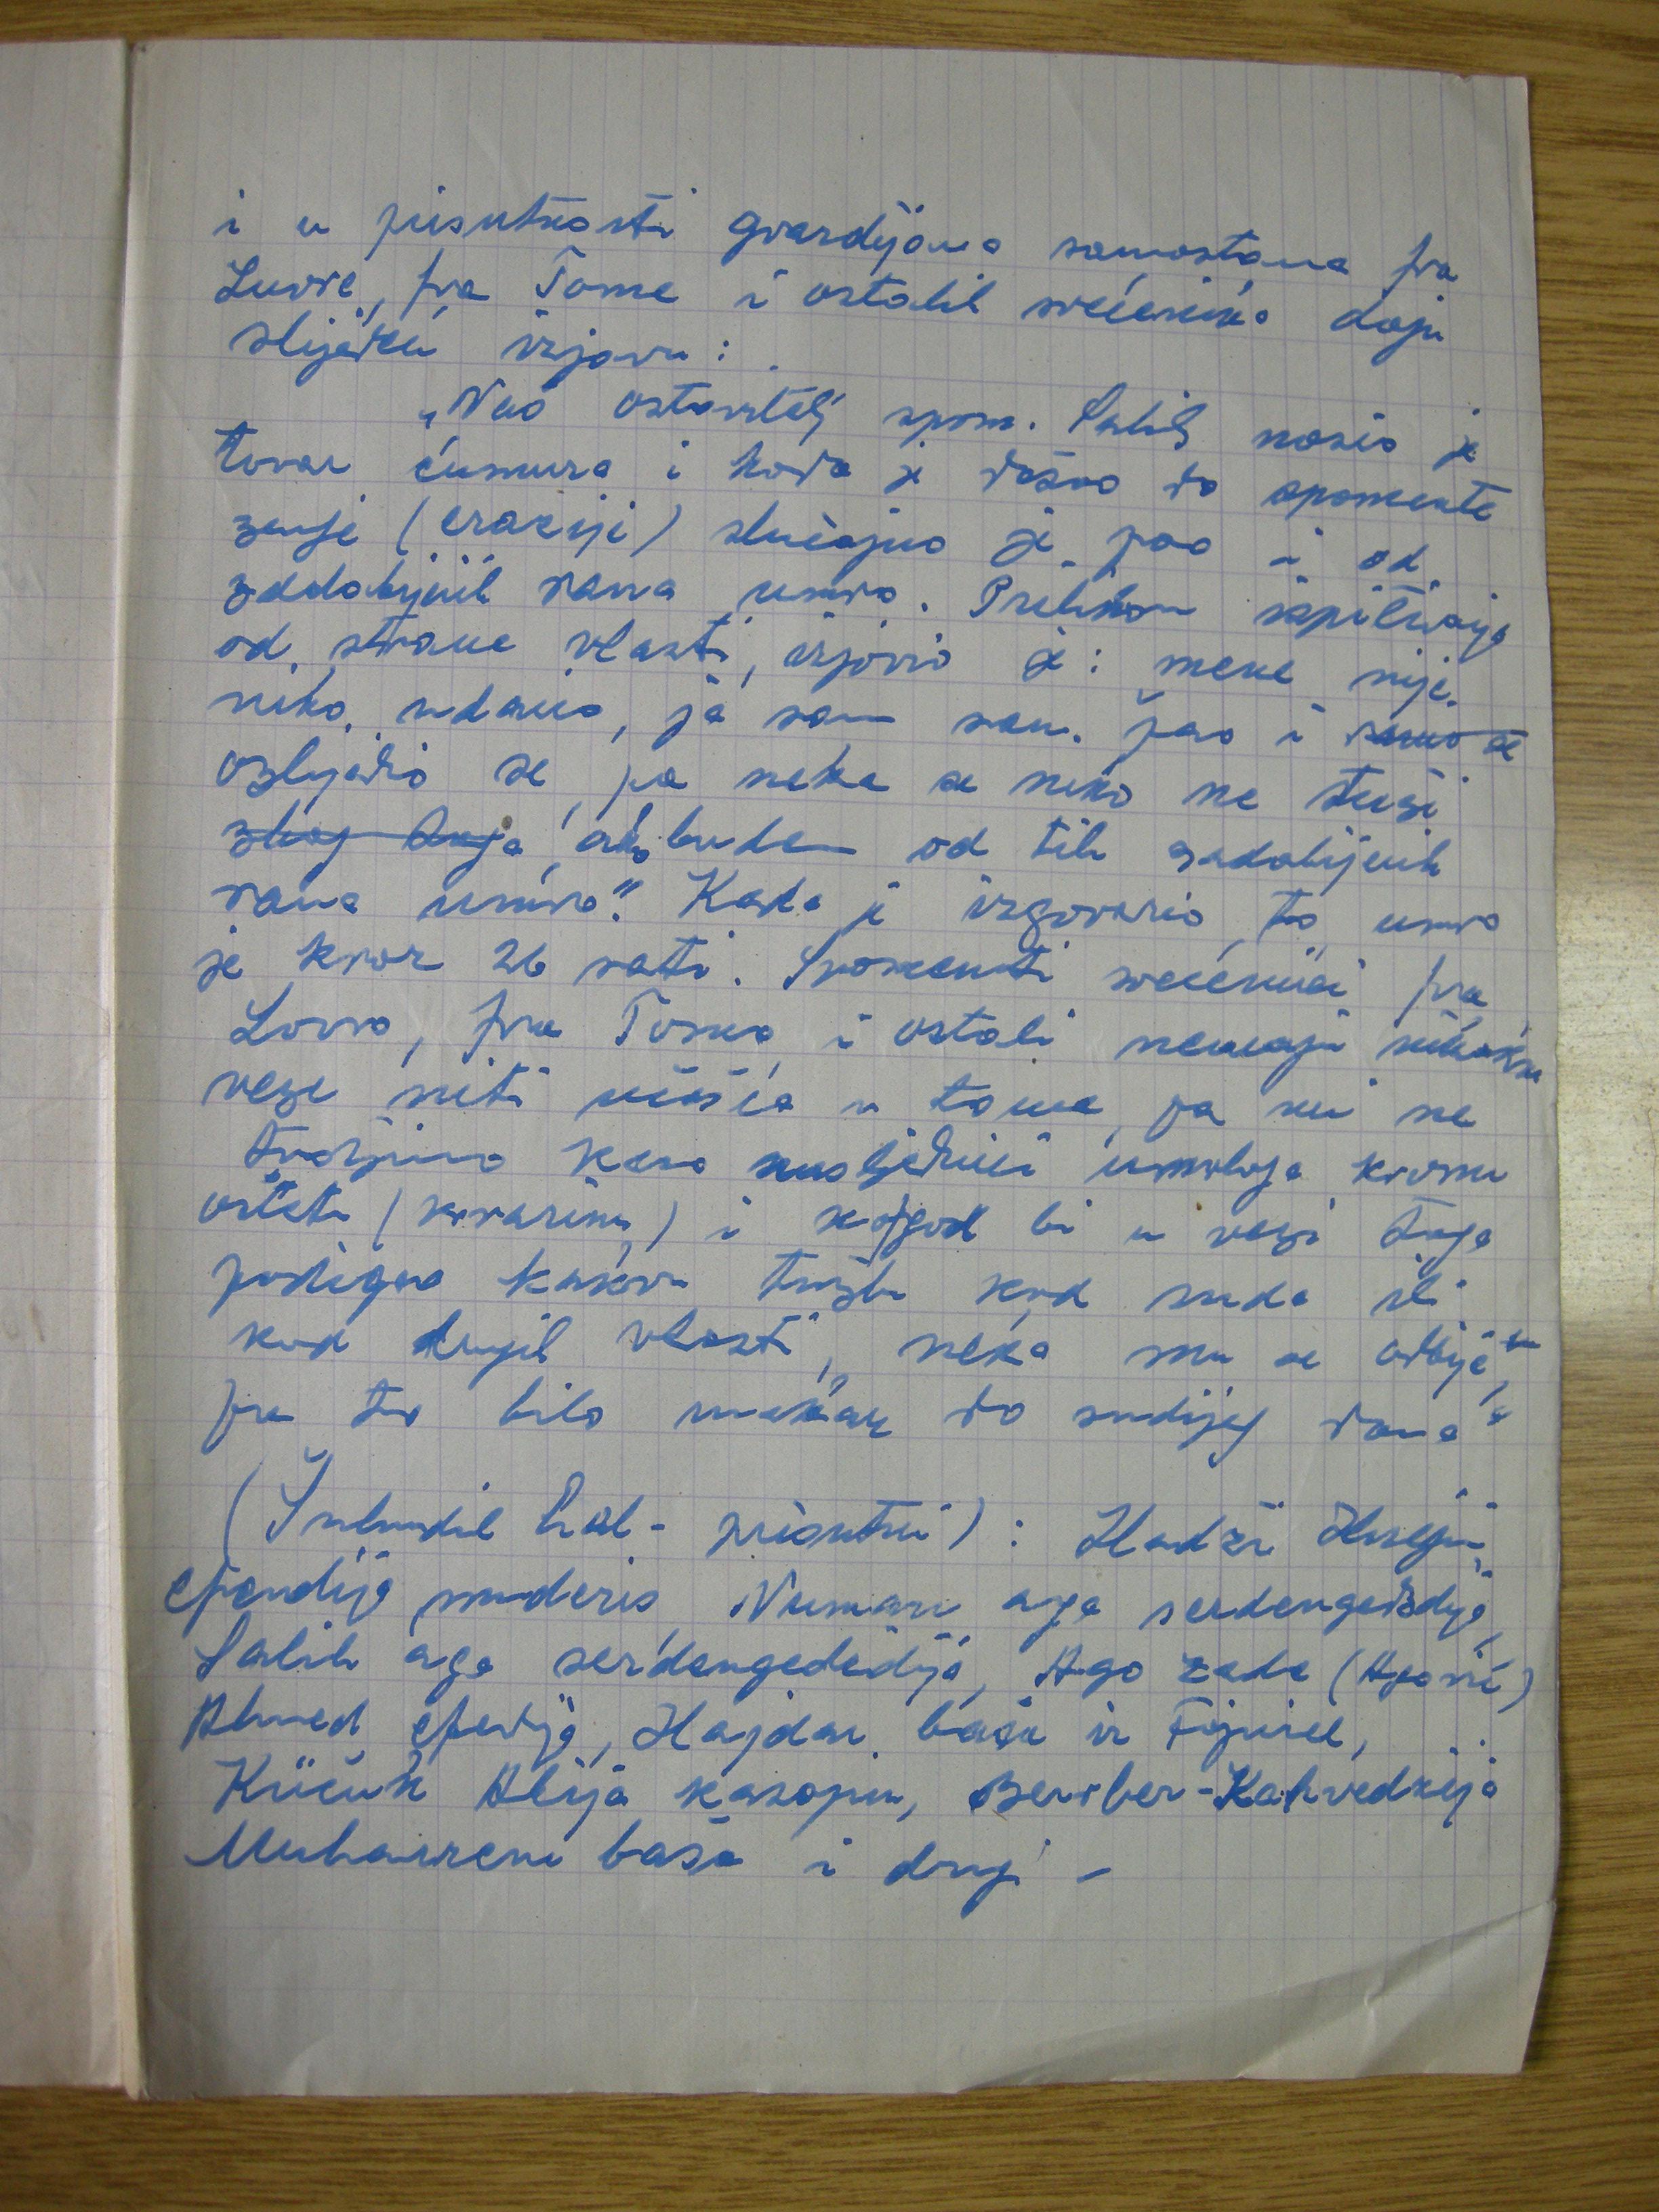 i u prisutnosti gvardijana samostana fra
Luvre, fra Tome i ostalih svećenika daju
slijedeću izjavu:
„Naš ostavitelj spom. Salih nosio je
tovar ćumura i kada je došao do spomenute
zemlje (erazije) slučajno je pao i od
zadobijenih rana umro. Prilikom ispitivanja
od strane vlasti, izjavio je: mene nije
niko udario, ja sam sam pao i samo se
ozlijedio se, pa neka se niko ne tuži
zbog toga ako budem od tih zadobijenih
rana umro." Kada je izgovorio to umro
je kroz 26 sati. Spomenuti svećenici fra
Lovro, fra Tomo i ostali nemaju nikakve
veze niti učešća u tome, pa mi ne
tražimo kao nasljednici umrloga krvnu
odštetu (krvarinu) i kogod bi u vezi toga
podigao kakvu tužbu kod suda ili
kod drugih vlasti, neka mu se odbije,
pa to bilo makar do sudnjeg dana"
(Šuhudil hal - prisutni): Hadži Husejin
efendija muderis, Numan aga serdengečdija,
Salih aga serdengečdija, Ago zade (Agović)
Ahmed efendija, Hajdar baša iz Fojnice,
Küčük Alija kasapin, Berber-Kahvedžija
Muharrem baša i drugi -